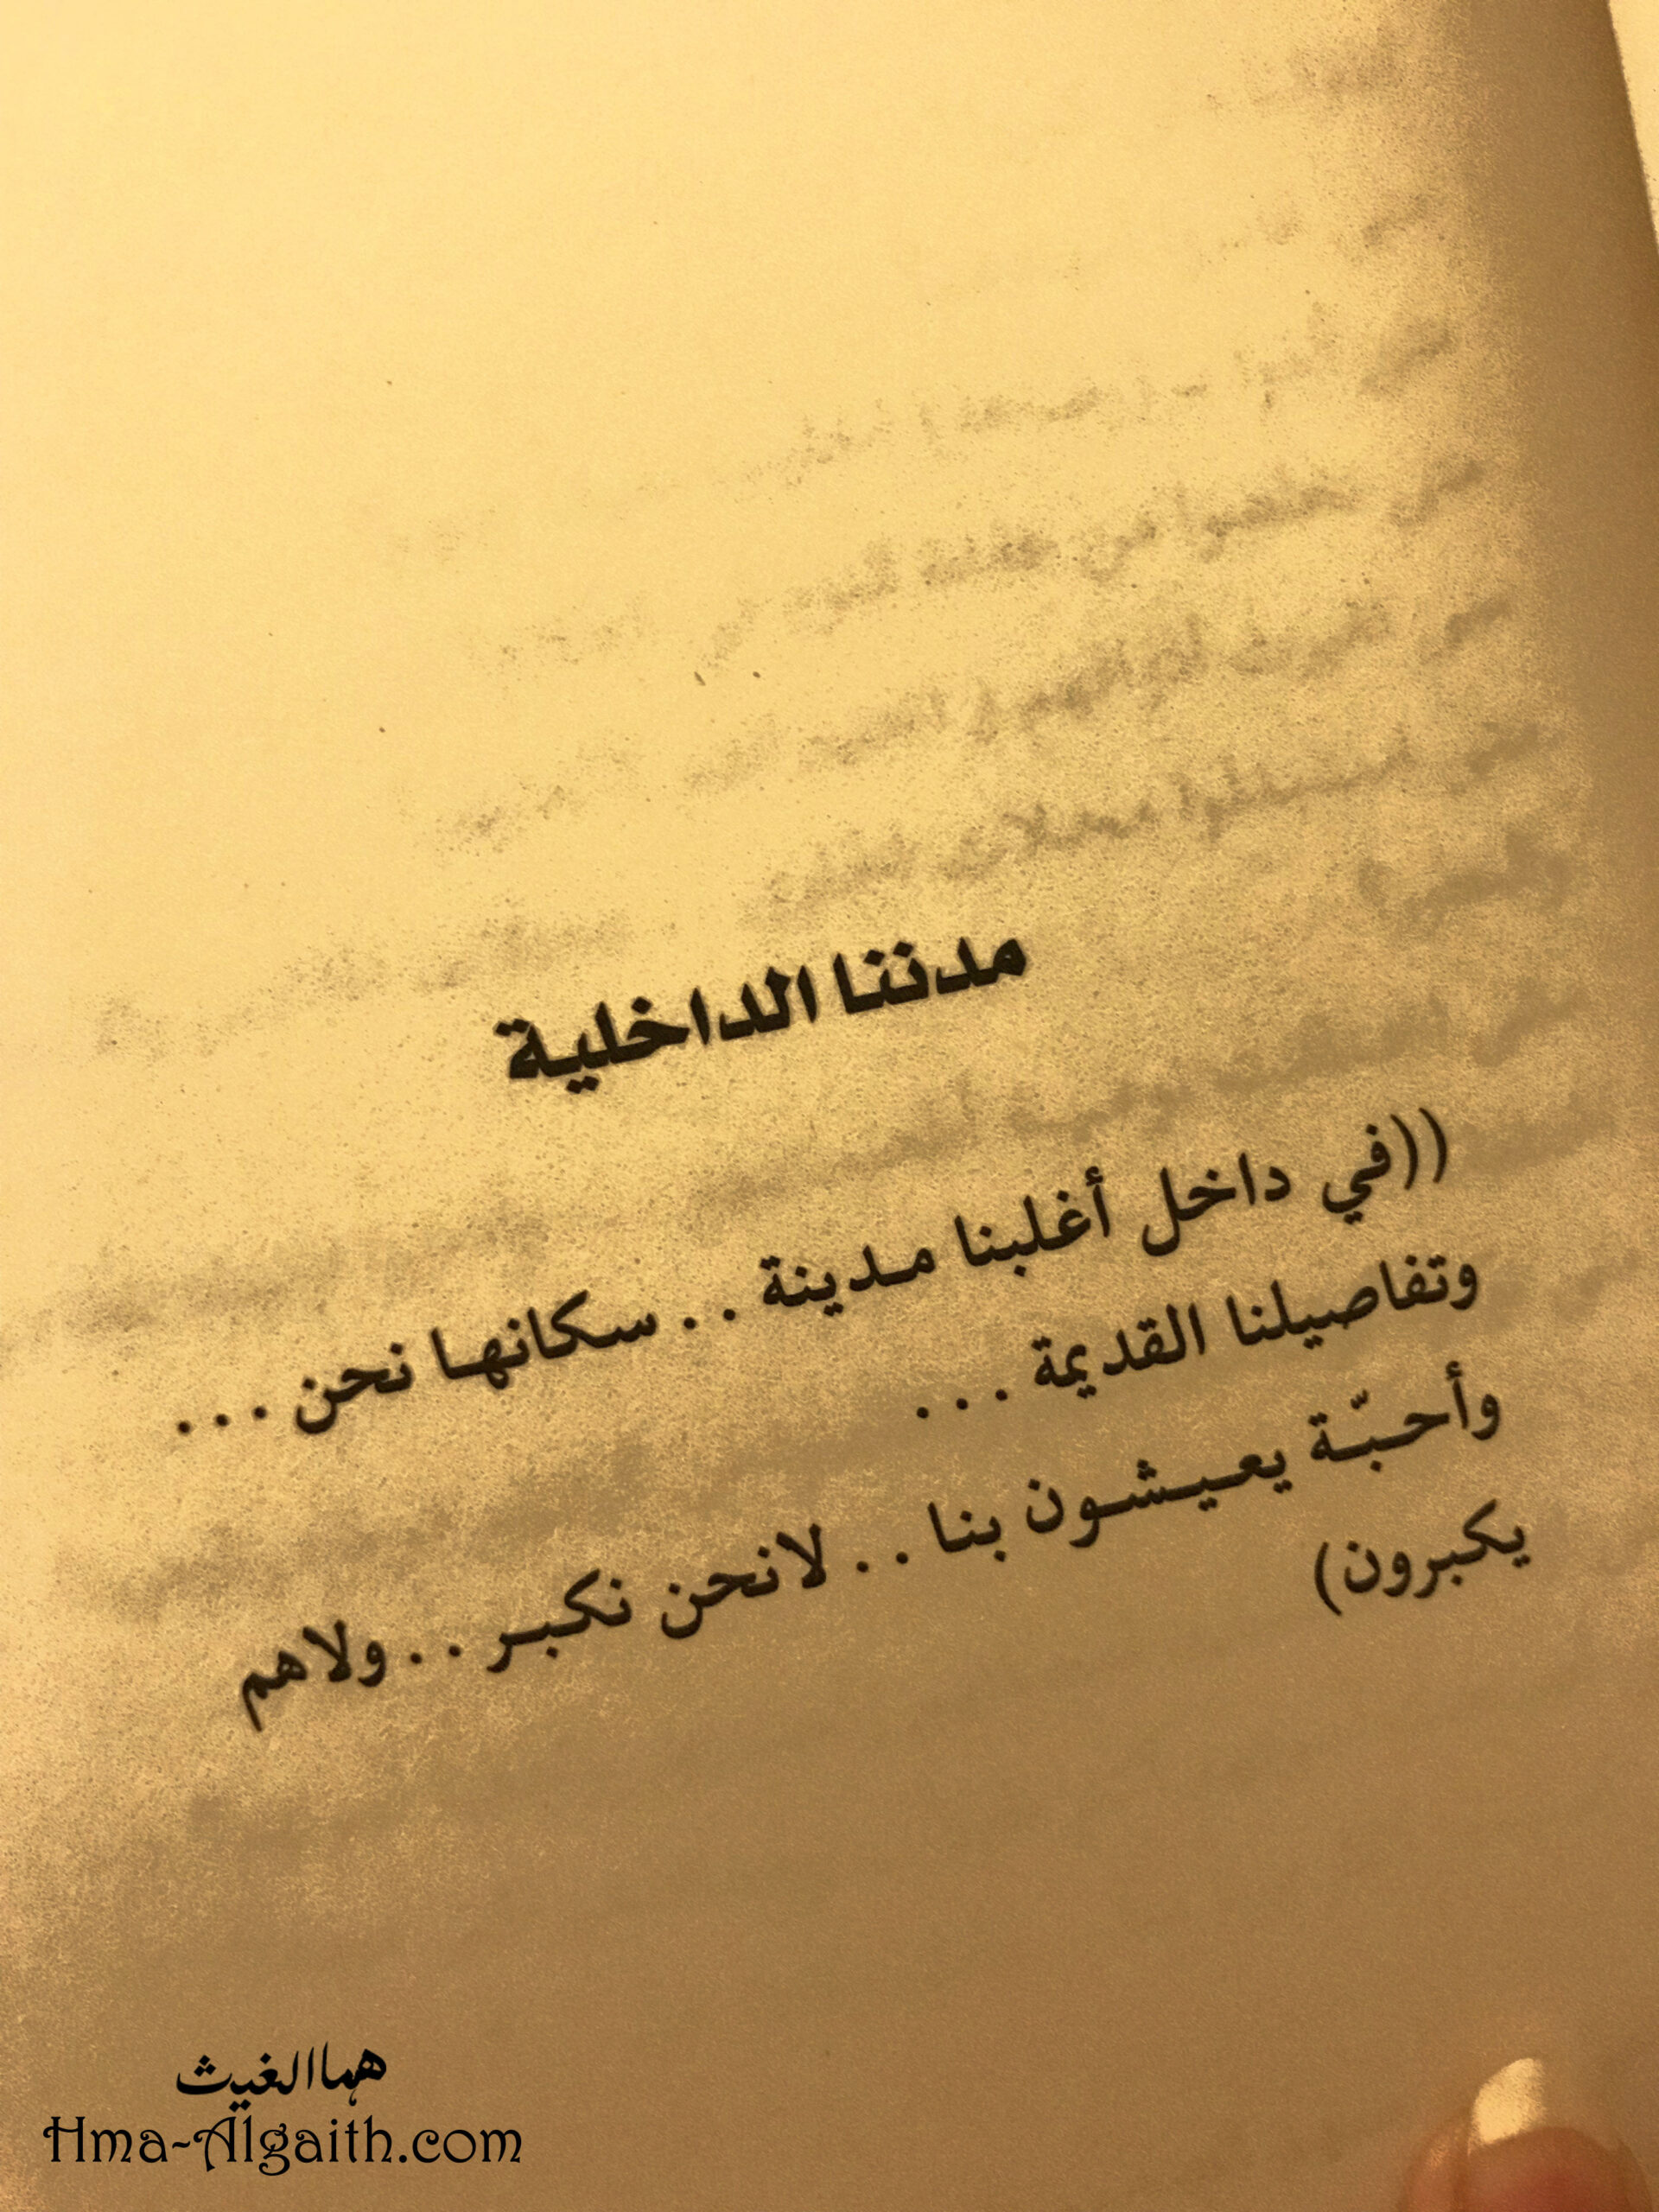 مدننا الداخلية
((في داخل أغلبنا مدينة . . سكانها نحن . . .
وتفاصيلنا القديمة . . .
وأحبّة يعيشون بنا . . لانحن نكبر . . ولاهم
يكبرون)
هما الغيث
Hma-Algaith.com